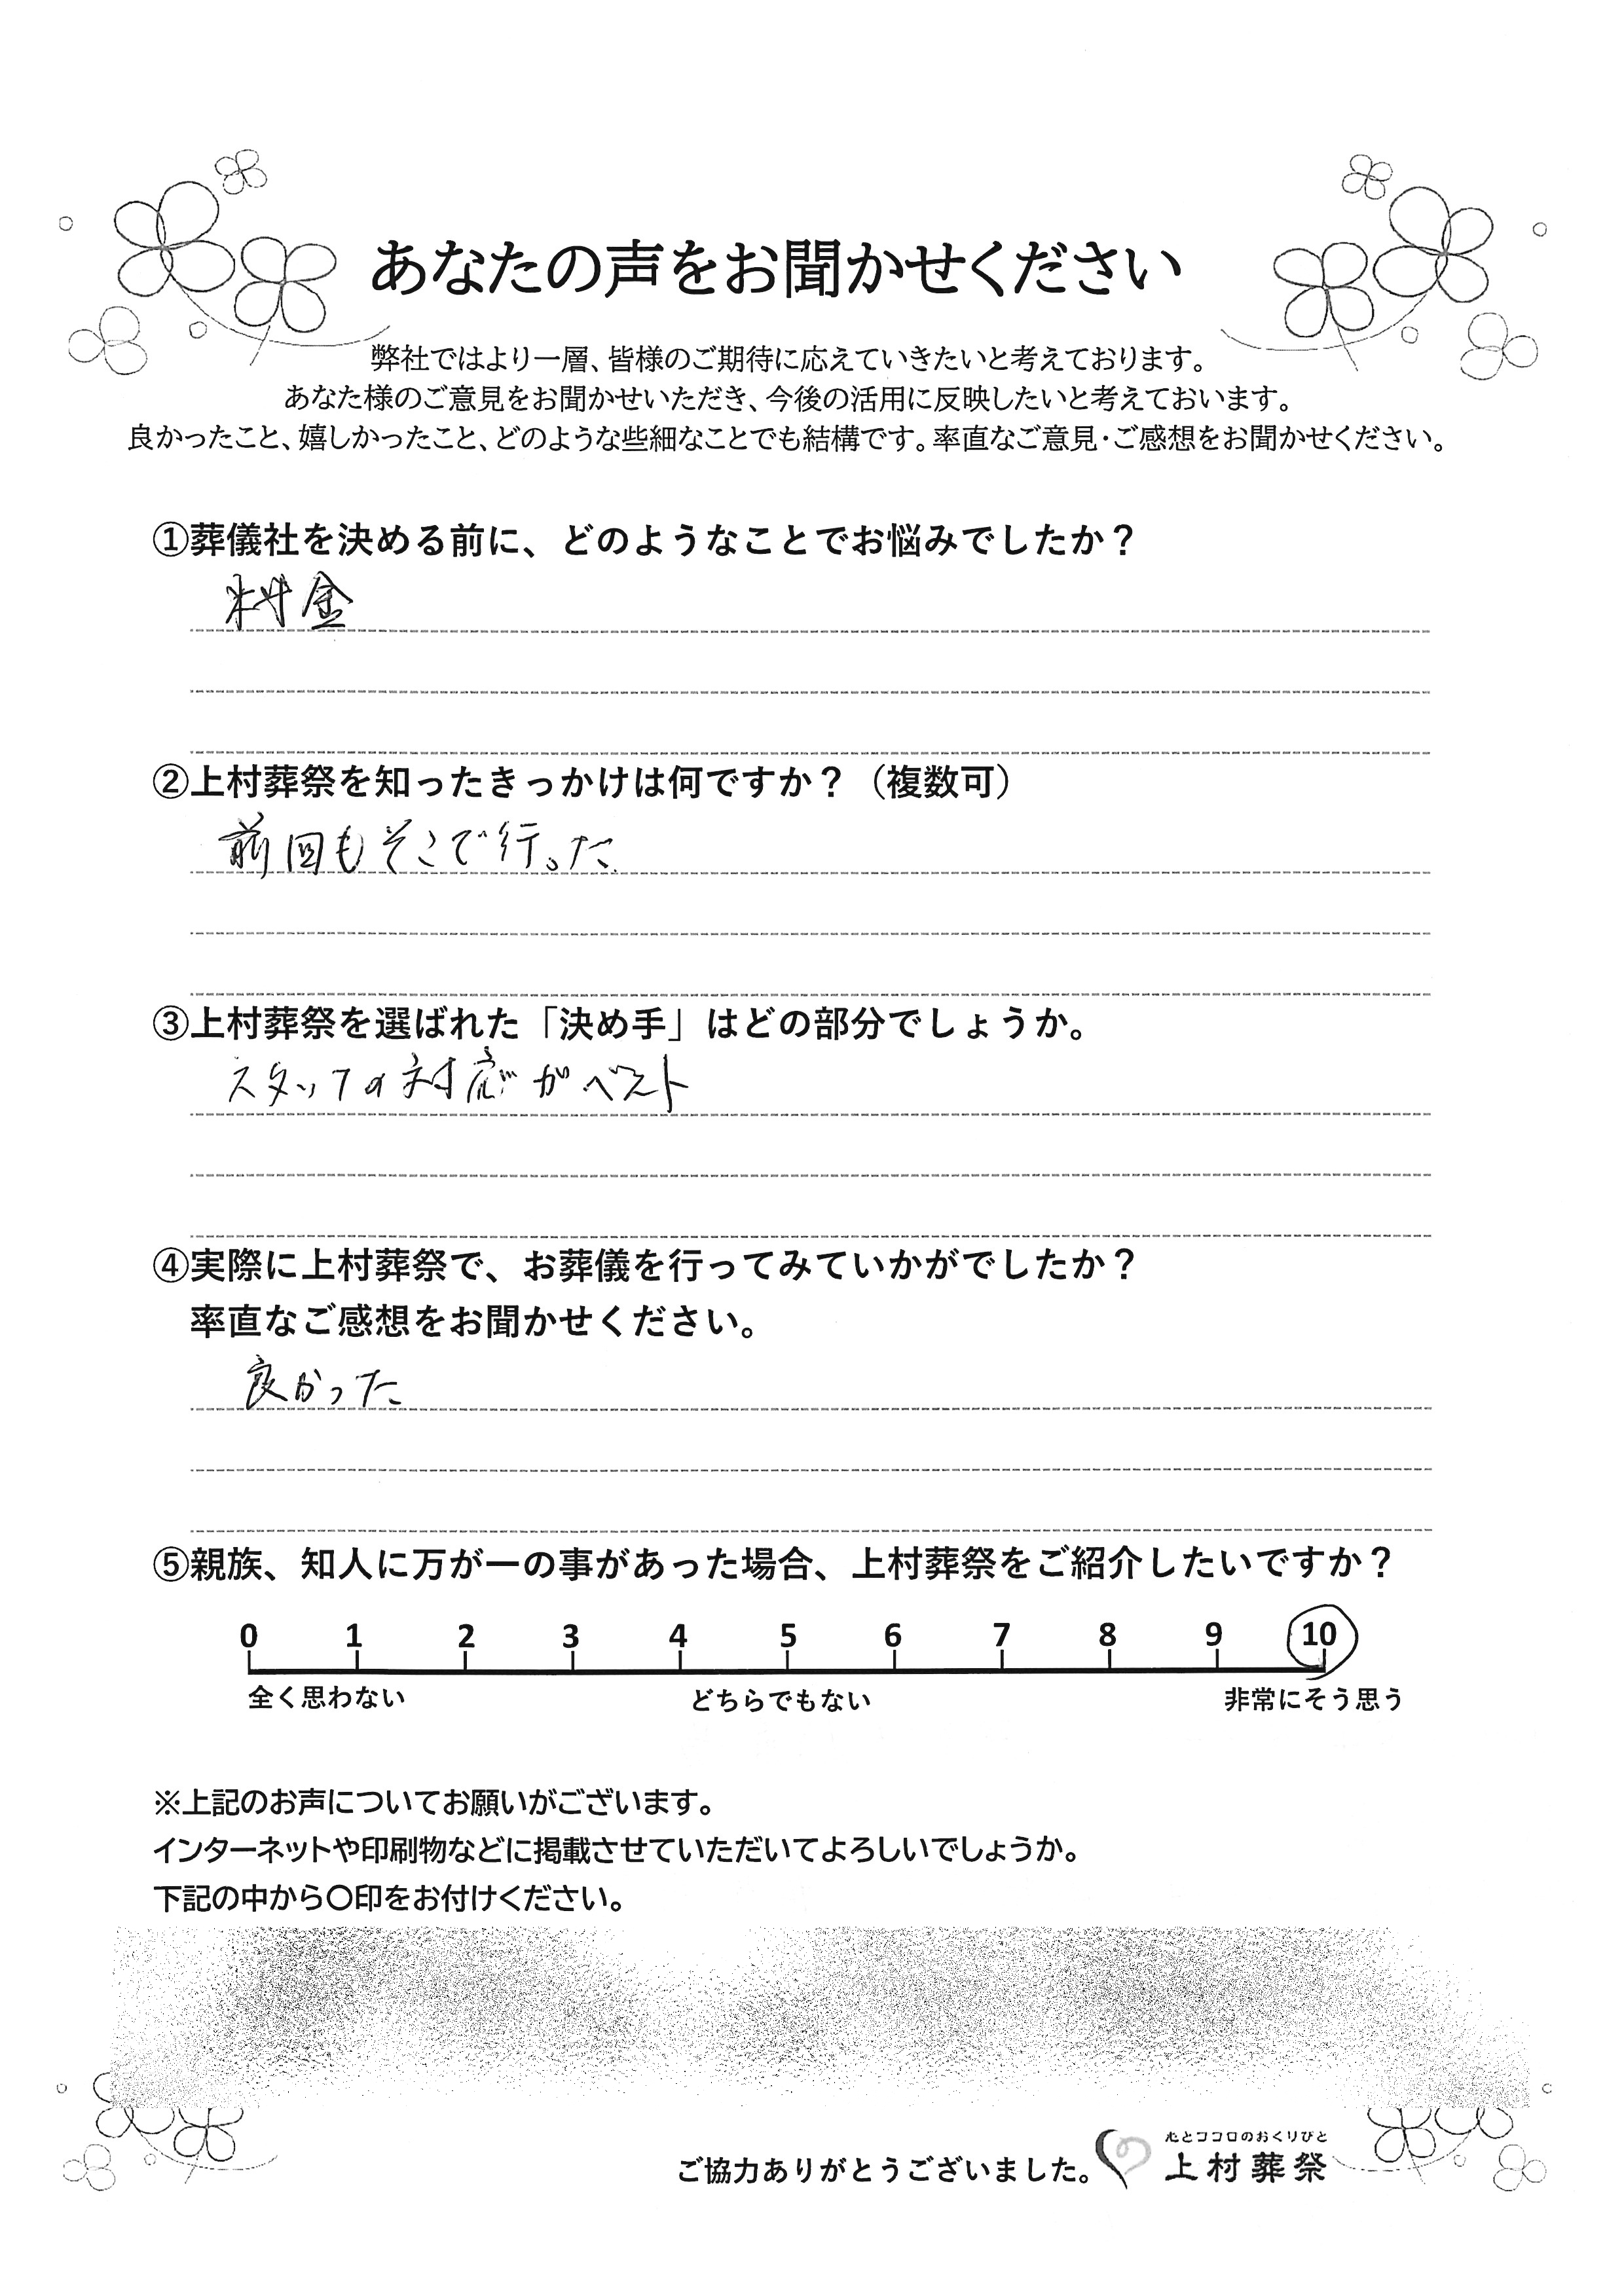 あなたの声をお聞かせください
弊社ではより一層、皆様のご期待に応えていきたいと考えております。
あなた様のご意見をお聞かせいただき、今後の活用に反映したいと考えておいます。
良かったこと、嬉しかったこと、どのような些細なことでも結構です。率直なご意見・ご感想をお聞かせください。
①葬儀社を決める前に、どのようなことでお悩みでしたか？
料金
②上村葬祭を知ったきっかけは何ですか？（複数可）
前回もそこで行った
③上村葬祭を選ばれた「決め手」はどの部分でしょうか。
スタッフの対応がベスト
④実際に上村葬祭で、お葬儀を行ってみていかがでしたか？
率直なご感想をお聞かせください。
良かった
⑤親族、知人に万が一の事があった場合、上村葬祭をご紹介したいですか？
0 1 2 3 4 5 6 7 8 9 10
全く思わない どちらでもない 非常にそう思う
※上記のお声についてお願いがございます。
インターネットや印刷物などに掲載させていただいてよろしいでしょうか。
下記の中から〇印をお付けください。
心とココロのおくりびと
ご協力ありがとうございました。上村葬祭